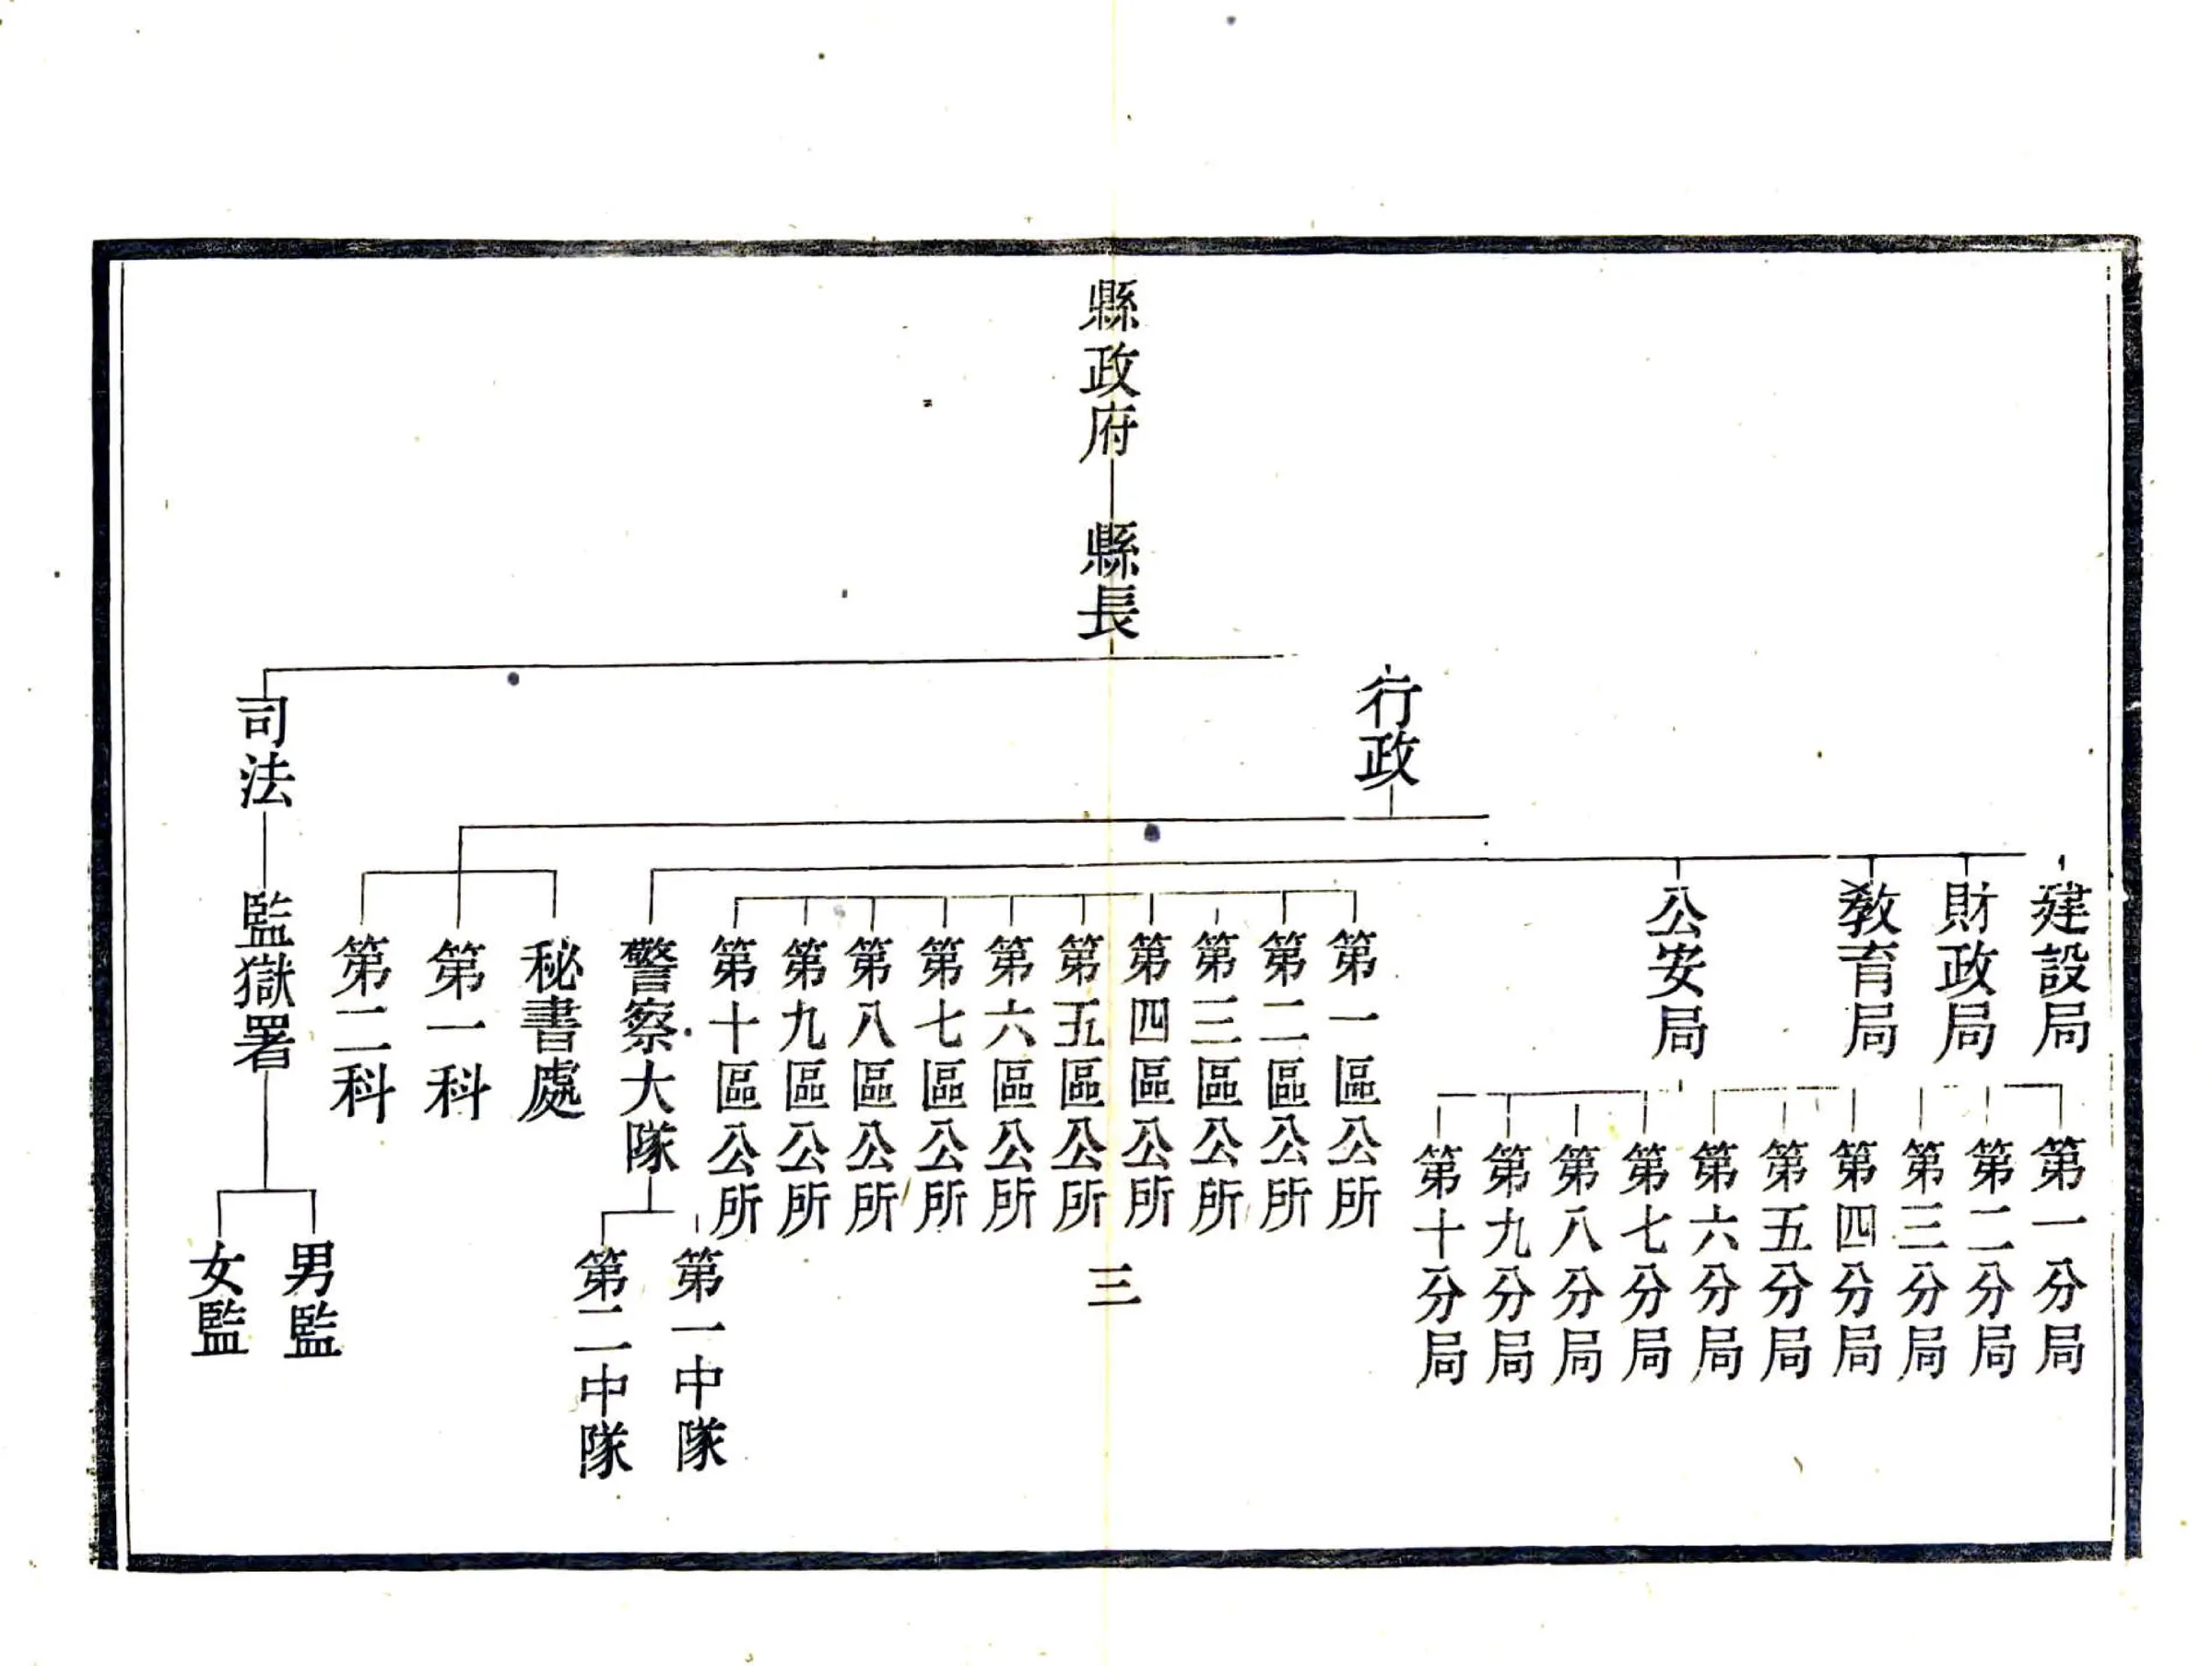 縣政府
縣長
行政
司法
建設局
財政局
教育局
公安局
第一分局
第二分局
第三分局
第四分局
第五分局
第六分局
第七分局
第八分局
第九分局
第十分局
第一區公所
第二區公所
第三區公所
第四區公所
第五區公所
第六區公所
第七區公所
第八區公所
第九區公所
第十區公所
警察大隊
第一中隊
第二中隊
秘書處
第一科
第二科
監獄署
男監
女監
三